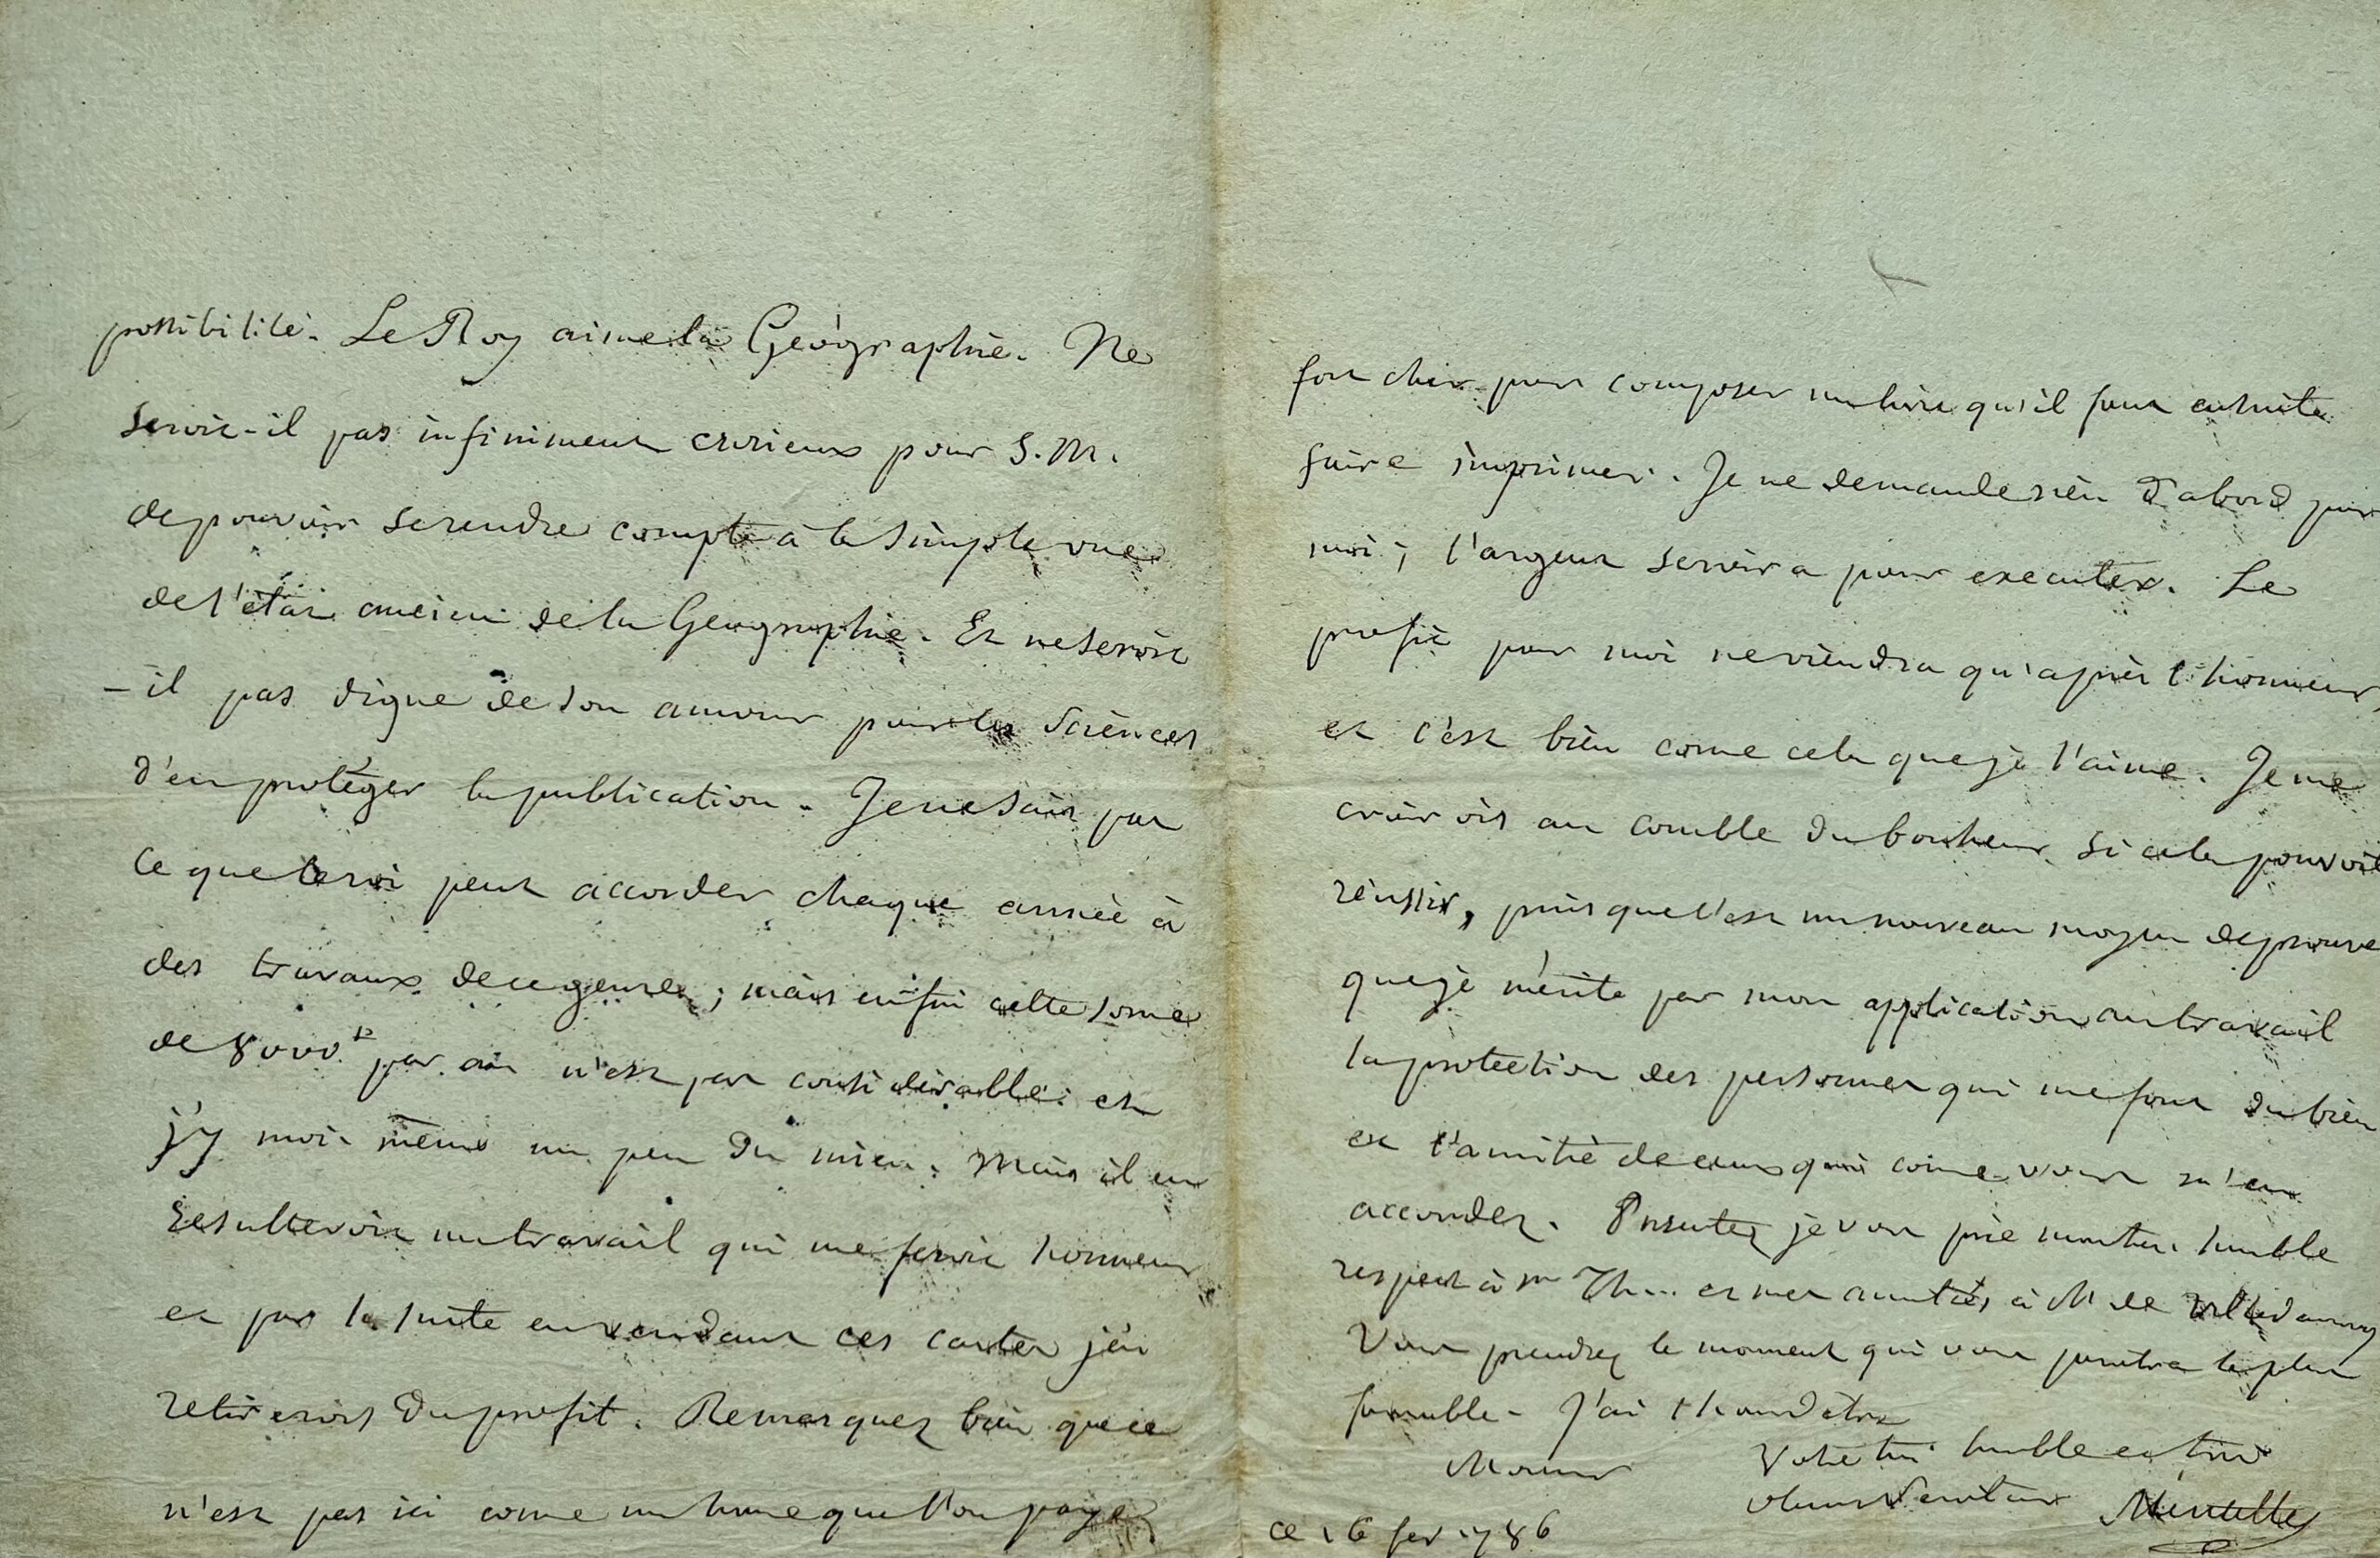 possibilité. Le Roy aime la Géographie. Ne
seroit-il pas infiniment curieux pour S. M.
de pouvoir se rendre compte à la simple vue
de l'état ancien de la Geographie. Et ne seroit
-il pas digne de son amour pour les Sciences
d'en protéger la publication. Je ne sais pas
ce que le roi peut accorder chaque année à
des travaux de ce genre; mais enfin cette some
de 8000.tt par an n'est pas considérable: et
j'y moi-même un peu du mien. Mais il en
resulteroit un travail qui me feroit honneur
et par la suite en vendant ces cartes j'en
retirerois du profit. Remarquez bien que ce
n'est pas ici come un home que l'on paye
fort cher pour composer un livre qu'il faut ensuite
faire imprimer. Je ne demande rien d'abord pour
moi; l'argent servira pour executer. Le
profit pour moi ne viendra qu'après l'honneur,
et c'est bien come cela que je l'aime. Je me
croirois au comble du bonheur si cela pouvoit
réussir, puisque c'est un nouveau moyen de prouver
que je mérite par mon application au travail
la protection des personnes qui me font du bien
et l'amitié de ceux qui come vous m'en
accordez. Présentez je vous prie mon très humble
respect à Mr Th... et mes amitiés à M de
Vous prendrez le moment qui vous paroitra le plus
favorable. J'ai l'honneur d'être
Monsieur Votre très humble et très
obeissant Serviteur Mentelle
ce 16 fev 1786